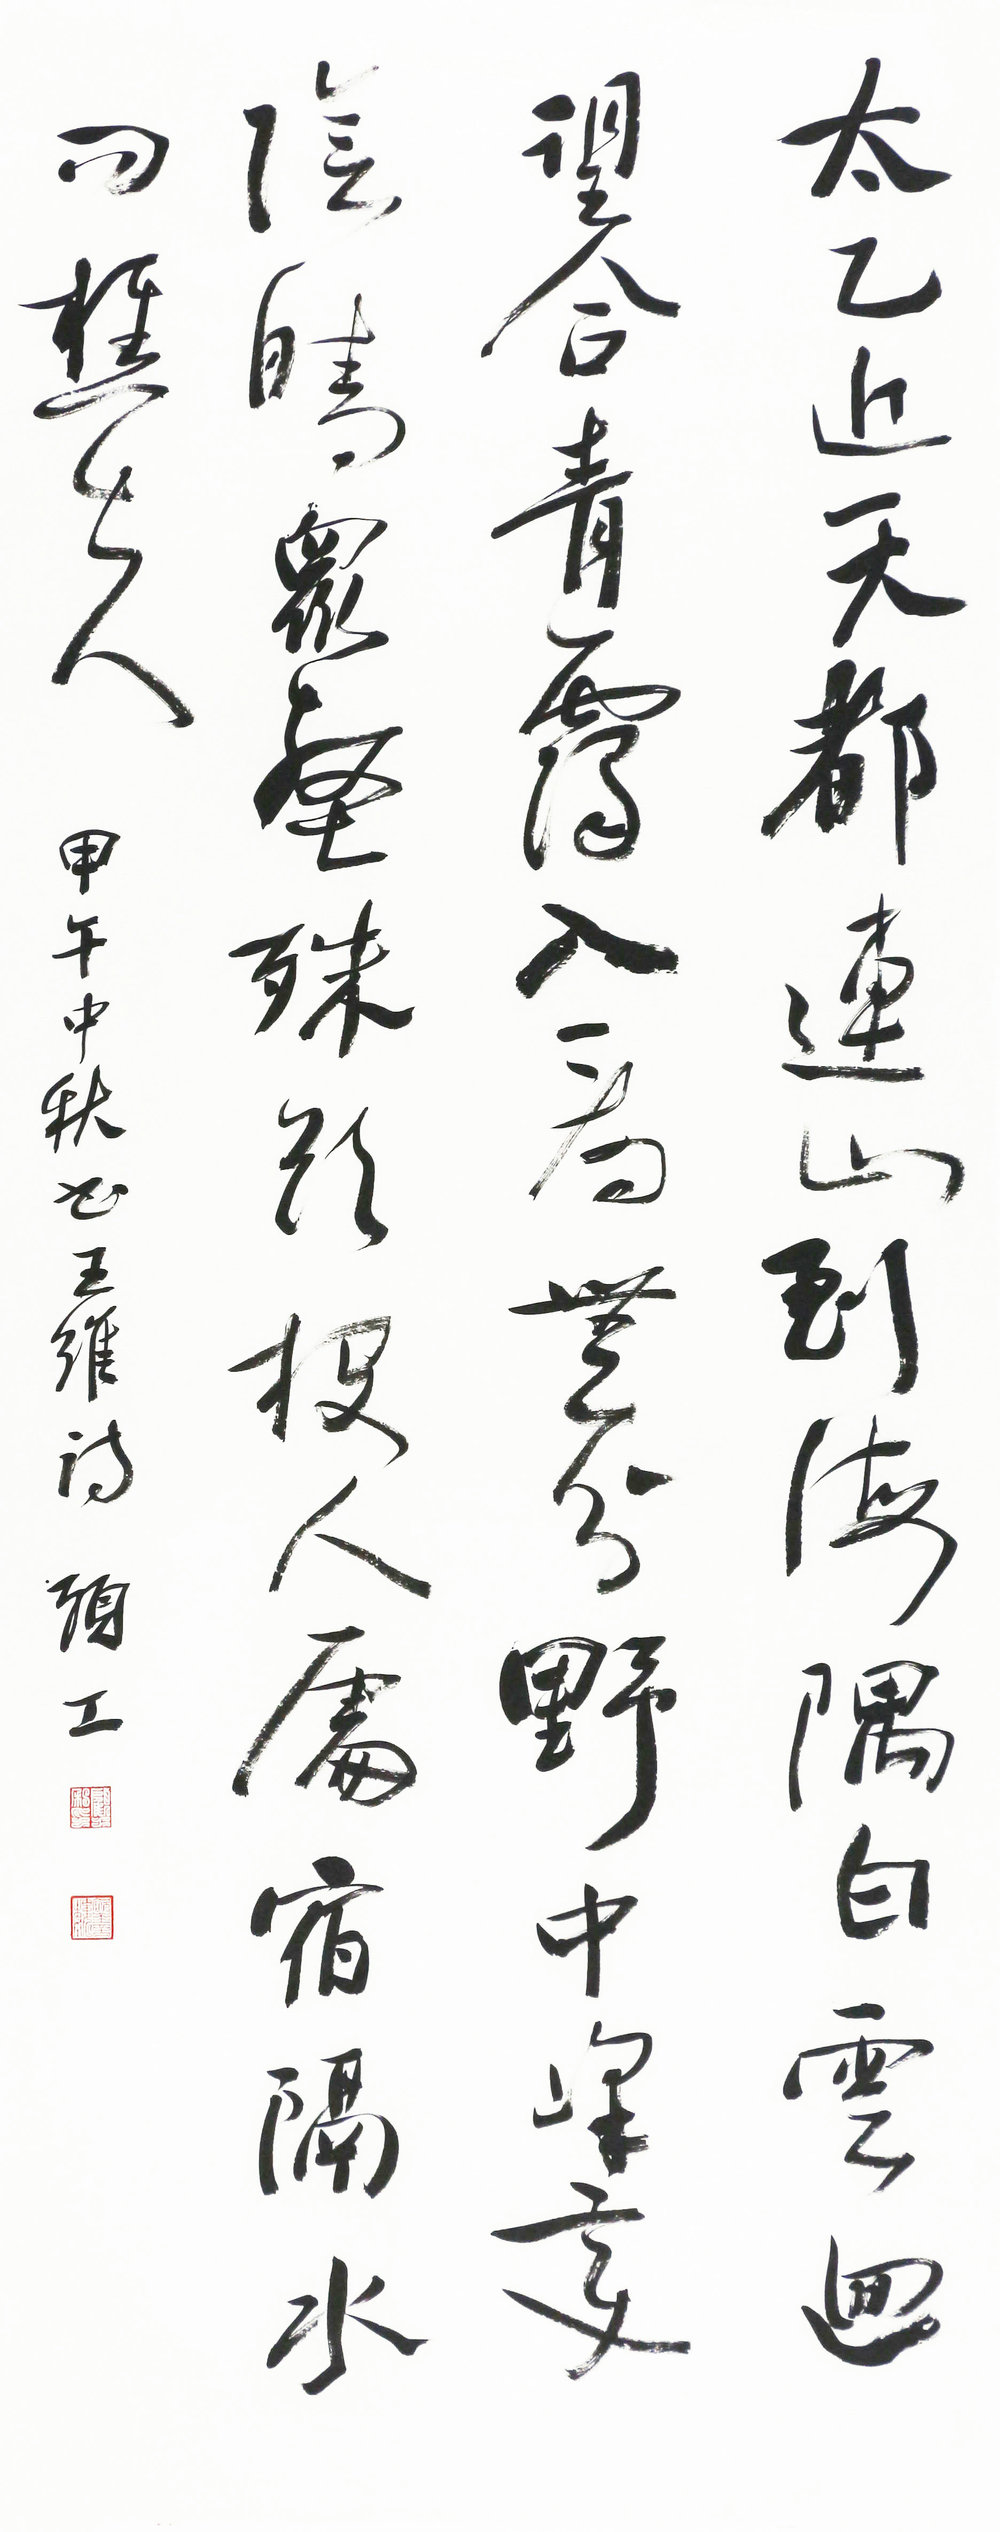 太乙近天都連山到海隅白雲迴
望合青靄入看無分野中峰變
陰晴眾壑殊欲投人處宿隔水
問樵夫 甲午中秋書王維詩 顧工